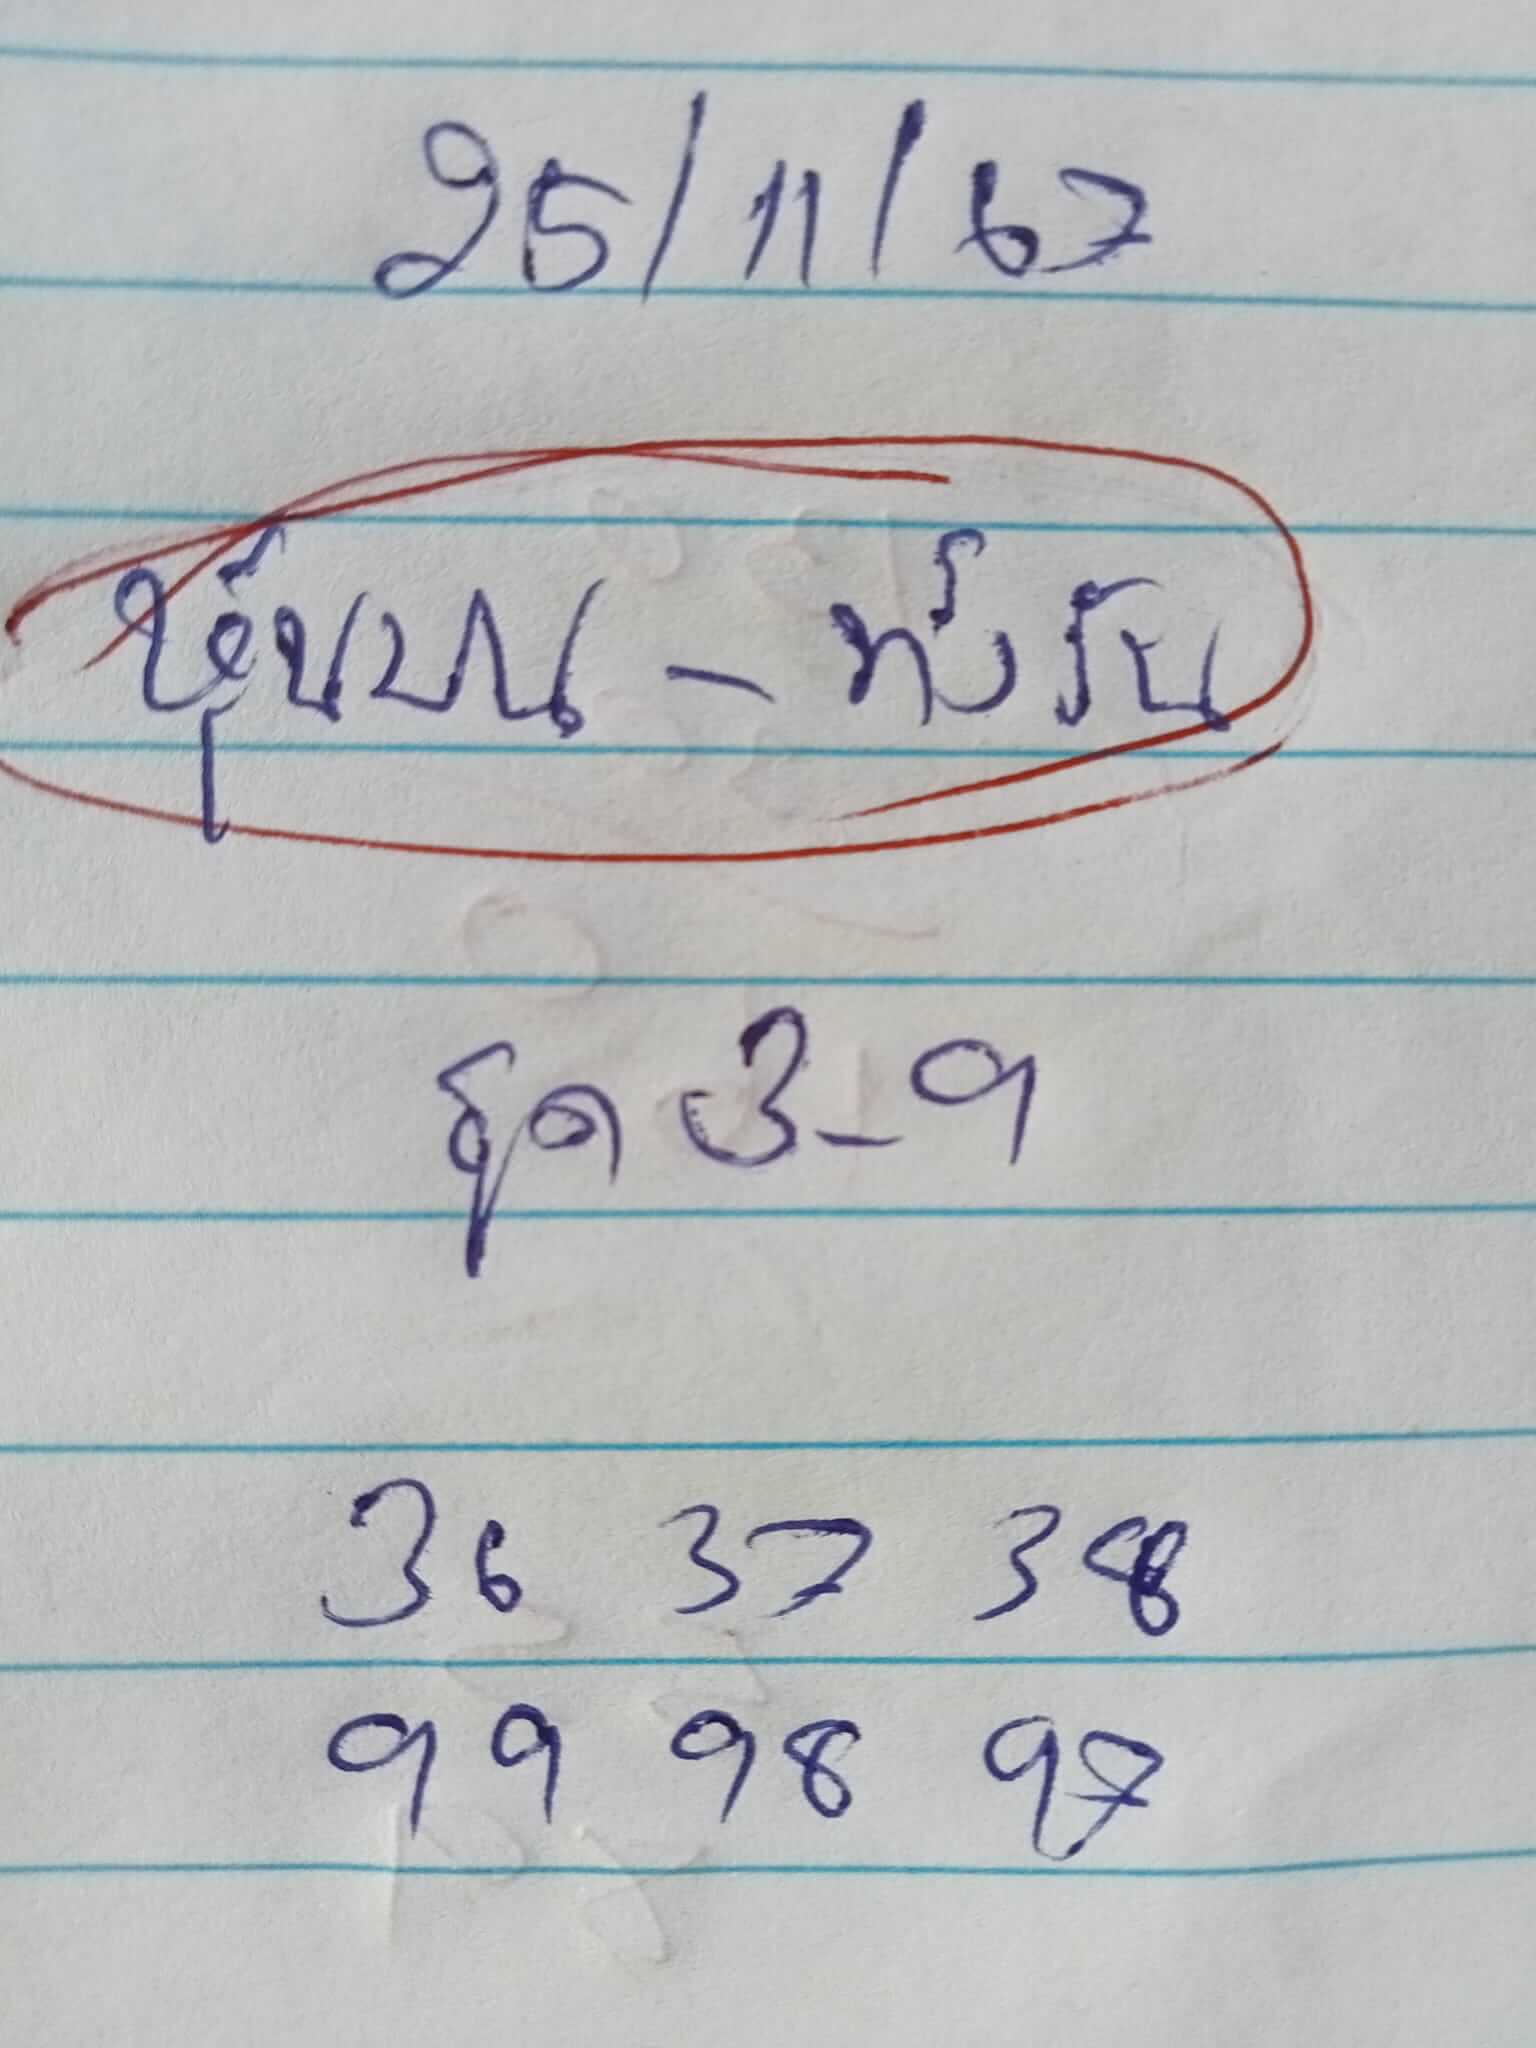 25/11/67
หุ้นบน - ทั้งวัน
รูด 3-9
36 37 38
99 98 97